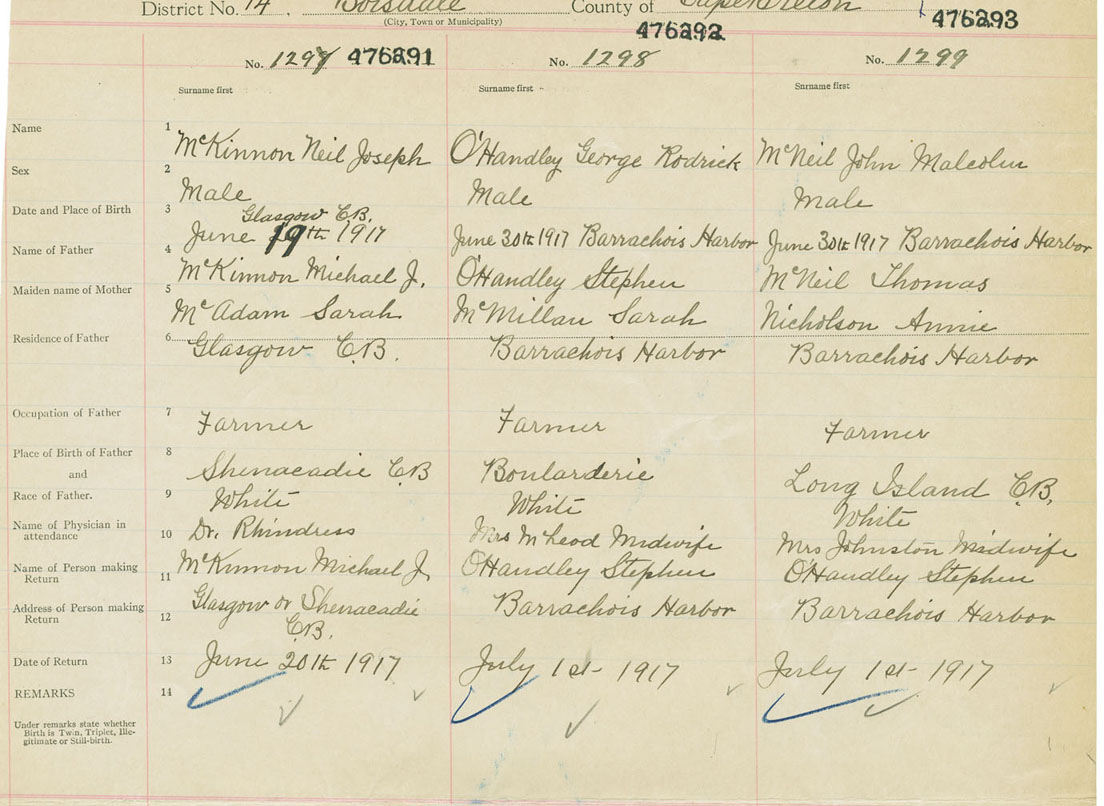 District No. 14. Boisdale County of Cape Breton
(City, Town or Municipality)
476292 476293
No. 1297 476291 No. 1298 No. 1299
Surname first Surname first Surname first
Name 1 McKinnon Neil Joseph O'Handley George Rodrick McNeil John Malcolm
Sex 2 Male Male Male
Glasgow C.B.
Date and Place of Birth 3 June 19th 1917 June 30th 1917 Barrachois Harbor June 30th 1917 Barrachois Harbor
Name of Father 4 McKinnon Michael J. O'Handley Stephen McNeil Thomas
Maiden name of Mother 5 McAdam Sarah McMillan Sarah Nicholson Annie
Residence of Father 6 Glasgow C.B. Barrachois Harbor Barrachois Harbor
Occupation of Father 7 Farmer Farmer Farmer
Place of Birth of Father 8 Shenacadie C.B Boularderie Long Island C.B.
and
Race of Father. 9 White White White
Name of Physician in
attendance 10 Dr. Rhindress Mrs McLeod Midwife Mrs Johnston Midwife
Name of Person making
Return 11 McKinnon Michael J. O'Handley Stephen O'Handley Stephen
Address of Person making
Return 12 Glasgow or Shenacadie Barrachois Harbor Barrachois Harbor
C.B.
Date of Return 13 June 20th 1917 July 1st 1917 July 1st 1917
REMARKS 14
Under remarks state whether
Birth is Twin, Triplet, Ille-
gitimate or Still-birth.